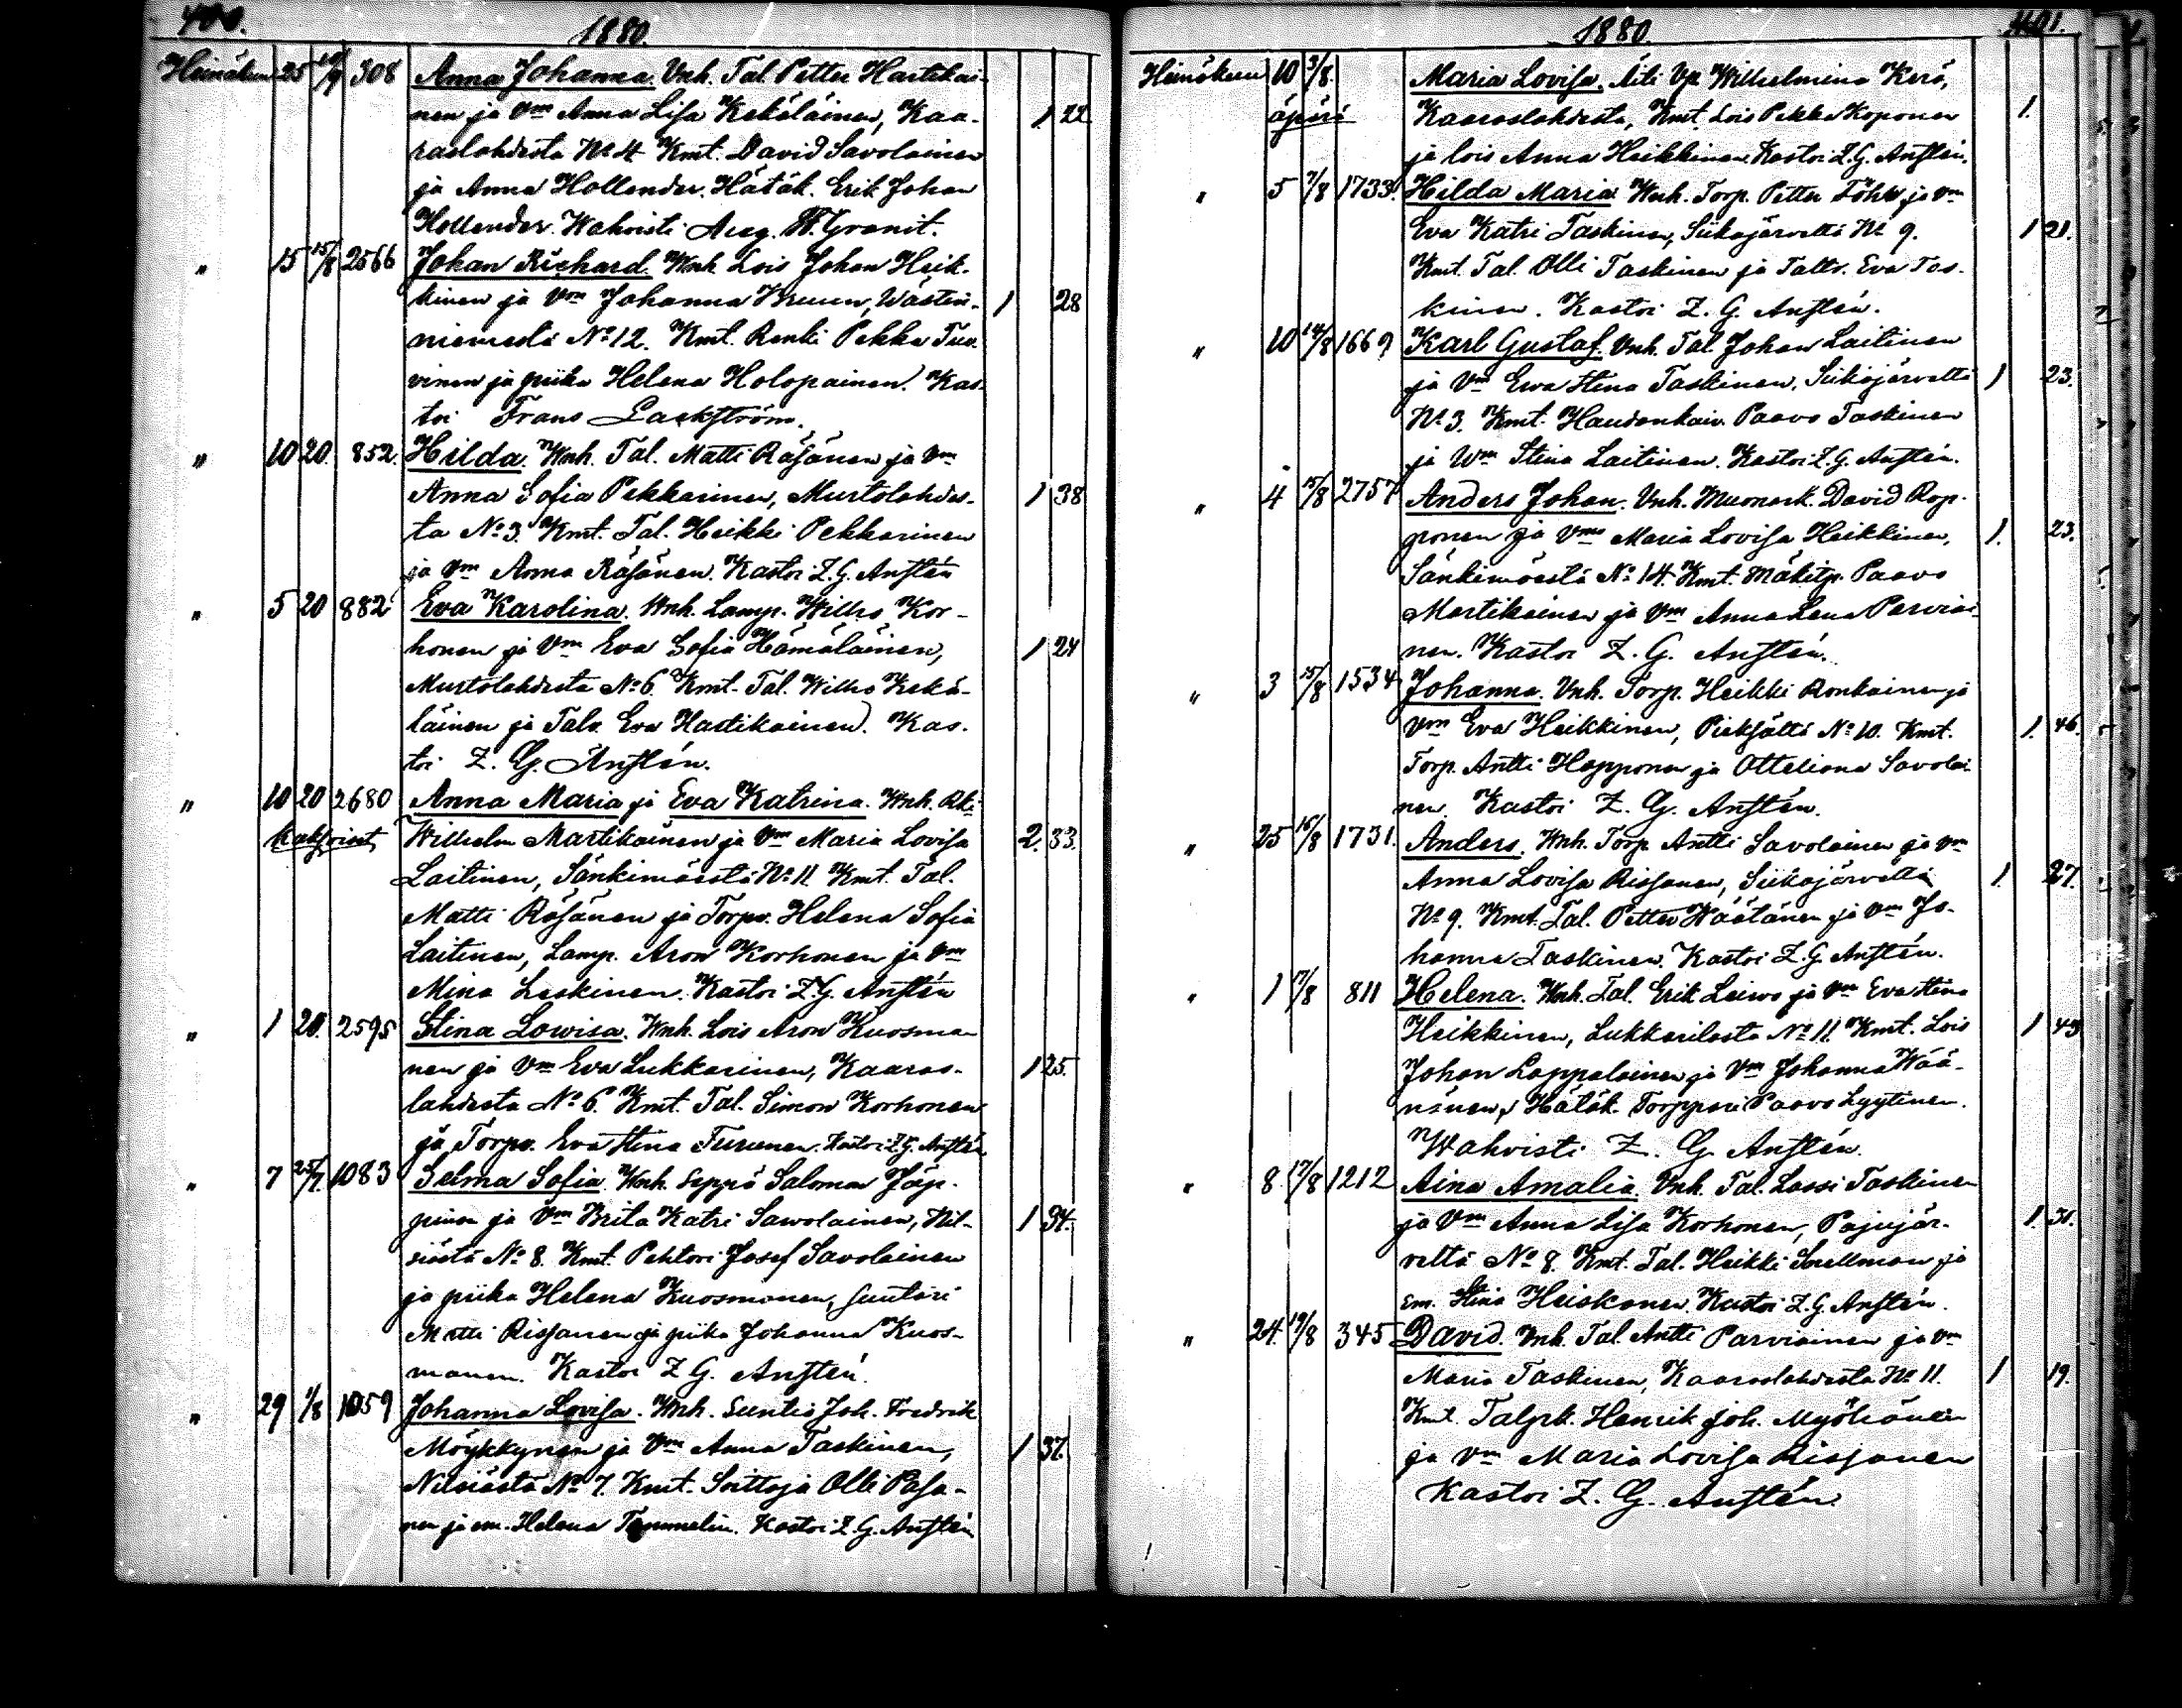 400.
1880.
Heinäkuu 25 10/9 308 Anna Johanna. Vnh. Tal. Petter Hartikai-
nen ja Vm Anna Lisa Kekäläinen, Kaa- 1 22.
raslahdesta No 4 Kmt. David Savolainen
ja Anna Hollender. Hätäk. Erik Johan
Hollender. Wahvisti Aug. W. Granit.
" 15 15/8 2566 Johan Richard. Wnh. Lois Johan Heik-
kinen ja Vm Johanna Kruun, Wästin- 1 28
niemestä No 12. Kmt. Renki Pekka Tuo-
vinen ja piika Helena Holopainen. Kas-
toi Frans Lackström.
" 10 20. 852. Hilda. Wnh. Tal. Matti Räsänen ja Vm
Anna Sofia Pekkarinen, Murtolahdes- 1 38
ta No 3. Kmt. Tal. Heikki Pekkarinen
ja Vm Anna Räsänen. Kastoi Z. G. Anstén
" 5 20 882 Eva Karolina. Wnh. Lamp. Wilho Kor-
honen ja Vm Eva Sofia Hämäläinen, 1 24
Murtolahdesta No 6. Kmt. Tal. Wilho Kekä-
läinen ja Talv. Eva Hartikainen. Kas-
toi Z. G. Anstén.
" 10 20 2680 Anna Maria ja Eva Katrina. Wnh. Rki
kaksoiset Wilhelm Martikainen ja Vm Maria Lovisa 2. 33.
Laitinen, Sänkimäestä No 11. Kmt. Tal.
Matti Räsänen ja Torpv. Helena Sofia
Laitinen, Lamp. Aron Korhonen ja Vm
Mina Leskinen. Kastoi Z. G. Anstén
" 1 20. 2595 Stina Lowisa. Wnh. Lois Aron Kuosma-
nen ja Vm Eva Lukkarinen, Kaaras- 1 25.
lahdesta No 6. Kmt. Tal. Simon Korhonen
ja Torpv. Eva Stina Turunen. Kastoi Z. G. Anstén
" 7 25/7. 1083 Selma Sofia. Wnh. Seppä Salomon Jäp-
pinen ja Vm Brita Katri Sawolainen, Nil- 1 34.
siästä No 8. Kmt. Pehtori Josef Savolainen
ja piika Helena Kuosmanen, suutari
Matti Rissanen ja piika Johanna Kuos-
manen. Kastoi Z G. Anstén.
" 29 1/8 1059 Johanna Lovisa. Wnh. Suntio Joh. Fredrik
Möykkynen ja Vm Anna Taskinen, 1 37.
Nilsiästä No 7. Kmt. Soittaja Olli Pasa-
nen ja em. Helena Tammelin. Kastoi Z. G. Anstén
1880.
401.
Heinäkuu 10 3/8. Maria Lovisa. Äiti Vp. Wilhelmina Kerö,
äpärä Kaaraslahdesta, Kmt. Lois Pekka Koponen 1.
ja lois Anna Heikkinen. Kastoi Z. G. Anstén.
" 5 7/8 1733. Hilda Maria. Wnh. Torp. Petter Föhr ja Vm
Eva Katri Taskinen, Siikajärveltä No 9. 1 21.
Kmt. Tal. Olli Taskinen ja Taltr. Eva Tas-
kinen. Kastoi Z. G. Anstén.
" 10 14/8 1669 Karl Gustaf. Vnh. Tal. Johan Laitinen
ja Vm Ewa Stina Taskinen, Siikajärveltä 1 23.
No 3. Kmt. Haudankaiv. Paavo Taskinen
ja Wm Stina Laitinen. Kastoi Z. G. Anstén.
" 4 15/8 2757 Anders Johan. Vnh. Muonark. David Rop-
ponen ja Vm Maria Lovisa Heikkinen, 1. 23.
Sänkimäestä No 14. Kmt. Mäkitp. Paavo
Martikainen ja Vm Anna Lena Parviai-
nen. Kastoi Z. G. Anstén.
" 3 15/8 1534 Johanna. Vnh. Torp. Heikki Ronkainen ja
Vm Eva Heikkinen, Pieksältä No 10. Kmt. 1. 46.
Torp. Antti Happonen ja Otteliana Savolai-
nen. Kastoi Z. G. Anstén.
" 25 16/8 1731. Anders. Wnh. Torp Antti Savolainen ja Vm
Anna Lovisa Rissanen, Siikajärveltä 1. 27.
No 9. Kmt. Tal. Petter Wäätänen ja Vm Jo-
hanna Taskinen. Kastoi Z. G. Anstén.
" 1 17/8 811 Helena. Wnh. Tal. Erik Leiwo ja Vm Eva Stina
Heikkinen, Lukkarilasta No 11. Kmt. Lois 1 43
Johan Lappalainen ja Vm Johanna Wää-
nänen, Hätäk. Torppari Paavo Lyytinen.
Wahvisti Z. G. Anstén.
" 8. 17/8 1212 Aina Amalia. Vnh. Tal. Lassi Taskinen
ja Vm Anna Lisa Korhonen, Pajujär- 1. 31.
veltä No 8. Kmt. Tal. Heikki Snellman ja
em. Stina Heiskanen. Kastoi Z. G. Anstén.
" 24. 19/8 345 David. Vnh. Tal. Antti Parviainen ja Vm
Maria Taskinen, Kaaraslahdesta No 11. 1 19.
Kmt. Talprk. Henrik Joh. Myöhänen
ja Vm Maria Lovisa Rissanen
Kastoi Z. G. Anstén.